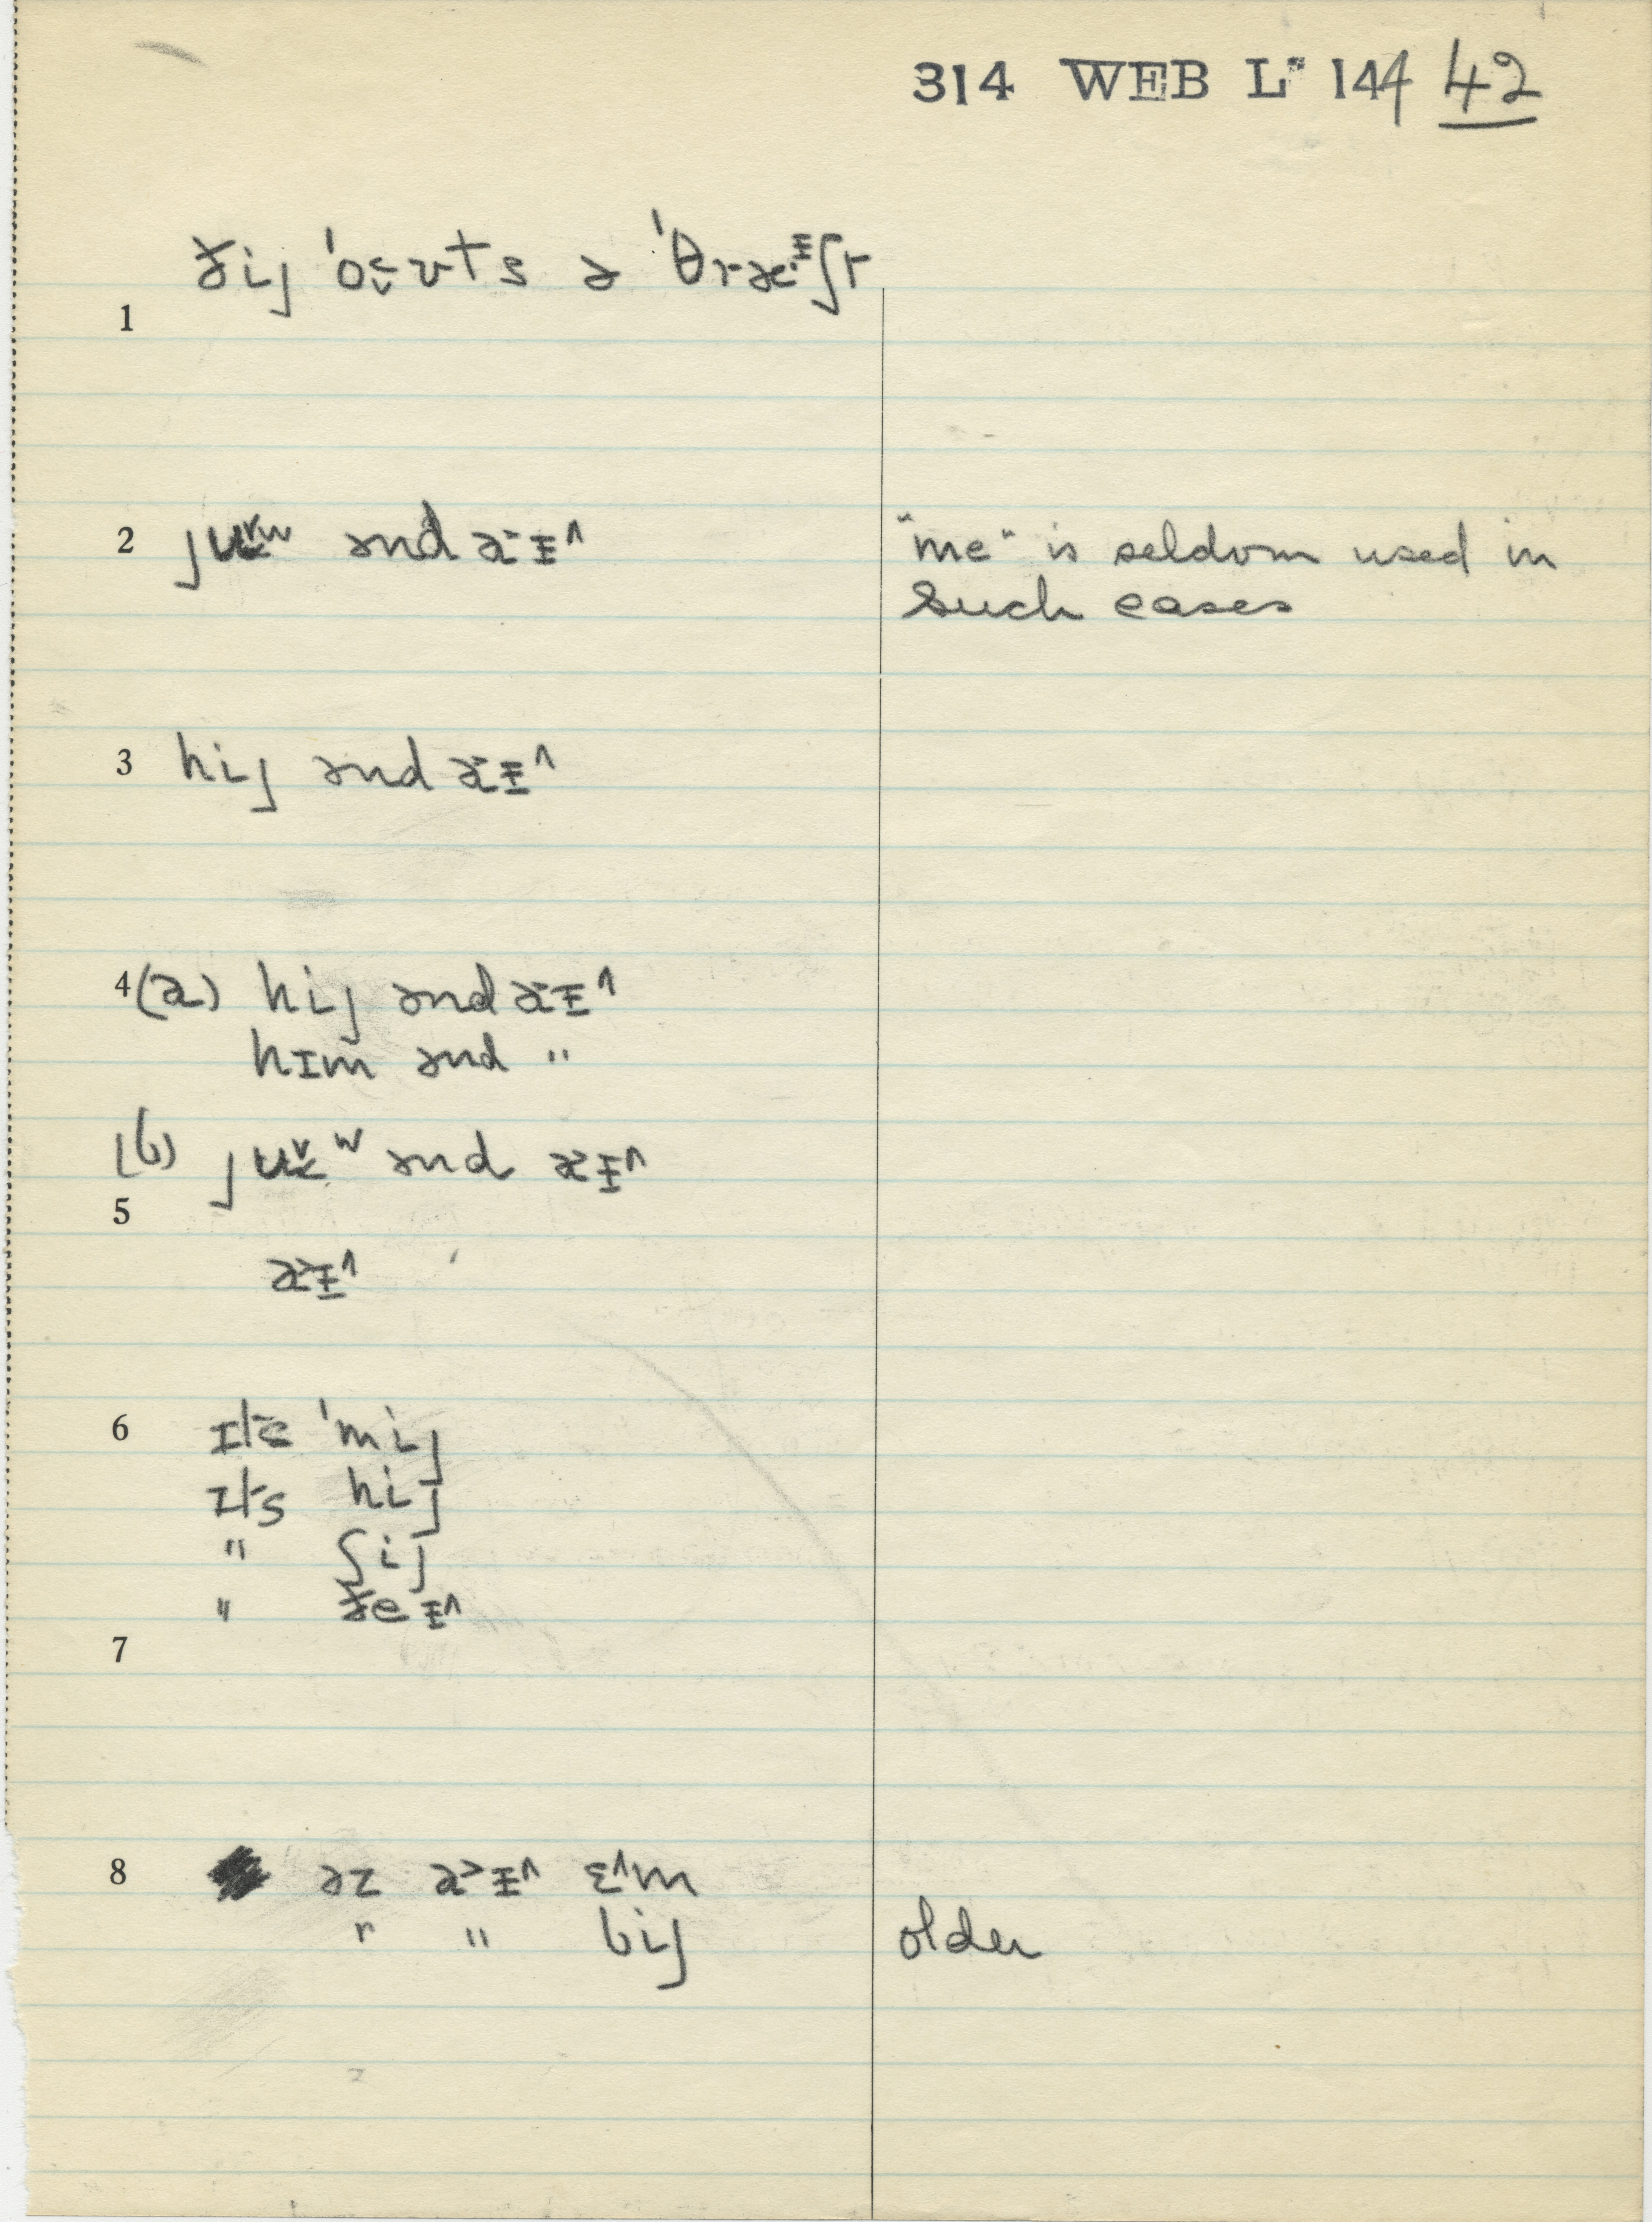 314 WEB L* 144 42
1 ðij 'oʊts ə 'θræᵻʃt
2 juʷ ənd aɨ^
"me" is seldom used in
such cases
3 hij ənd aɨ^
4 (a) hij ənd aɨ^
hɪm ənd "
(b) juʷ ənd aɨ^
5
aɨ^
6 ɪts 'mij
ɪts hij
" ʃij
" ðeɨ^
7
8 əz aɨ^ ɛ^m
" " bij older